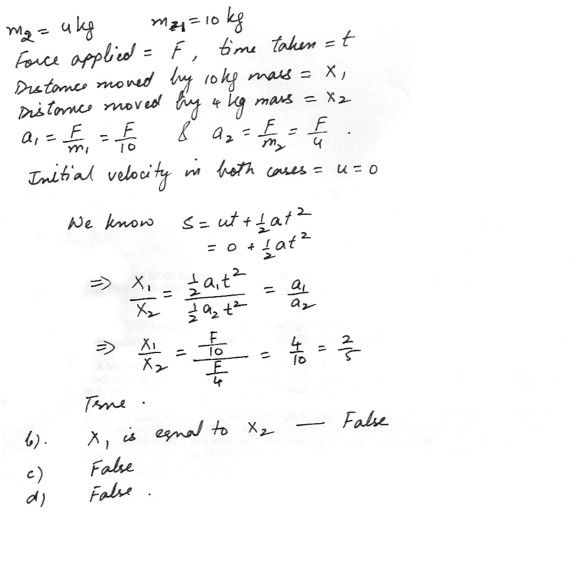 m₂ = 4 kg m₁ = 10 kg
Force applied = F, time taken = t
Distance moved by 10 kg mass = x₁
Distance moved by 4 kg mass = x₂
a₁ = F/m₁ = F/10 & a₂ = F/m₂ = F/4 .
Initial velocity in both cases = u = 0
We know s = ut + ½at²
= 0 + ½at²
⇒ x₁/x₂ = ½a₁t² / ½a₂t² = a₁/a₂
⇒ x₁/x₂ = (F/10)/(F/4) = 4/10 = 2/5
True .
b). x₁ is equal to x₂ — False
c) False
d) False .